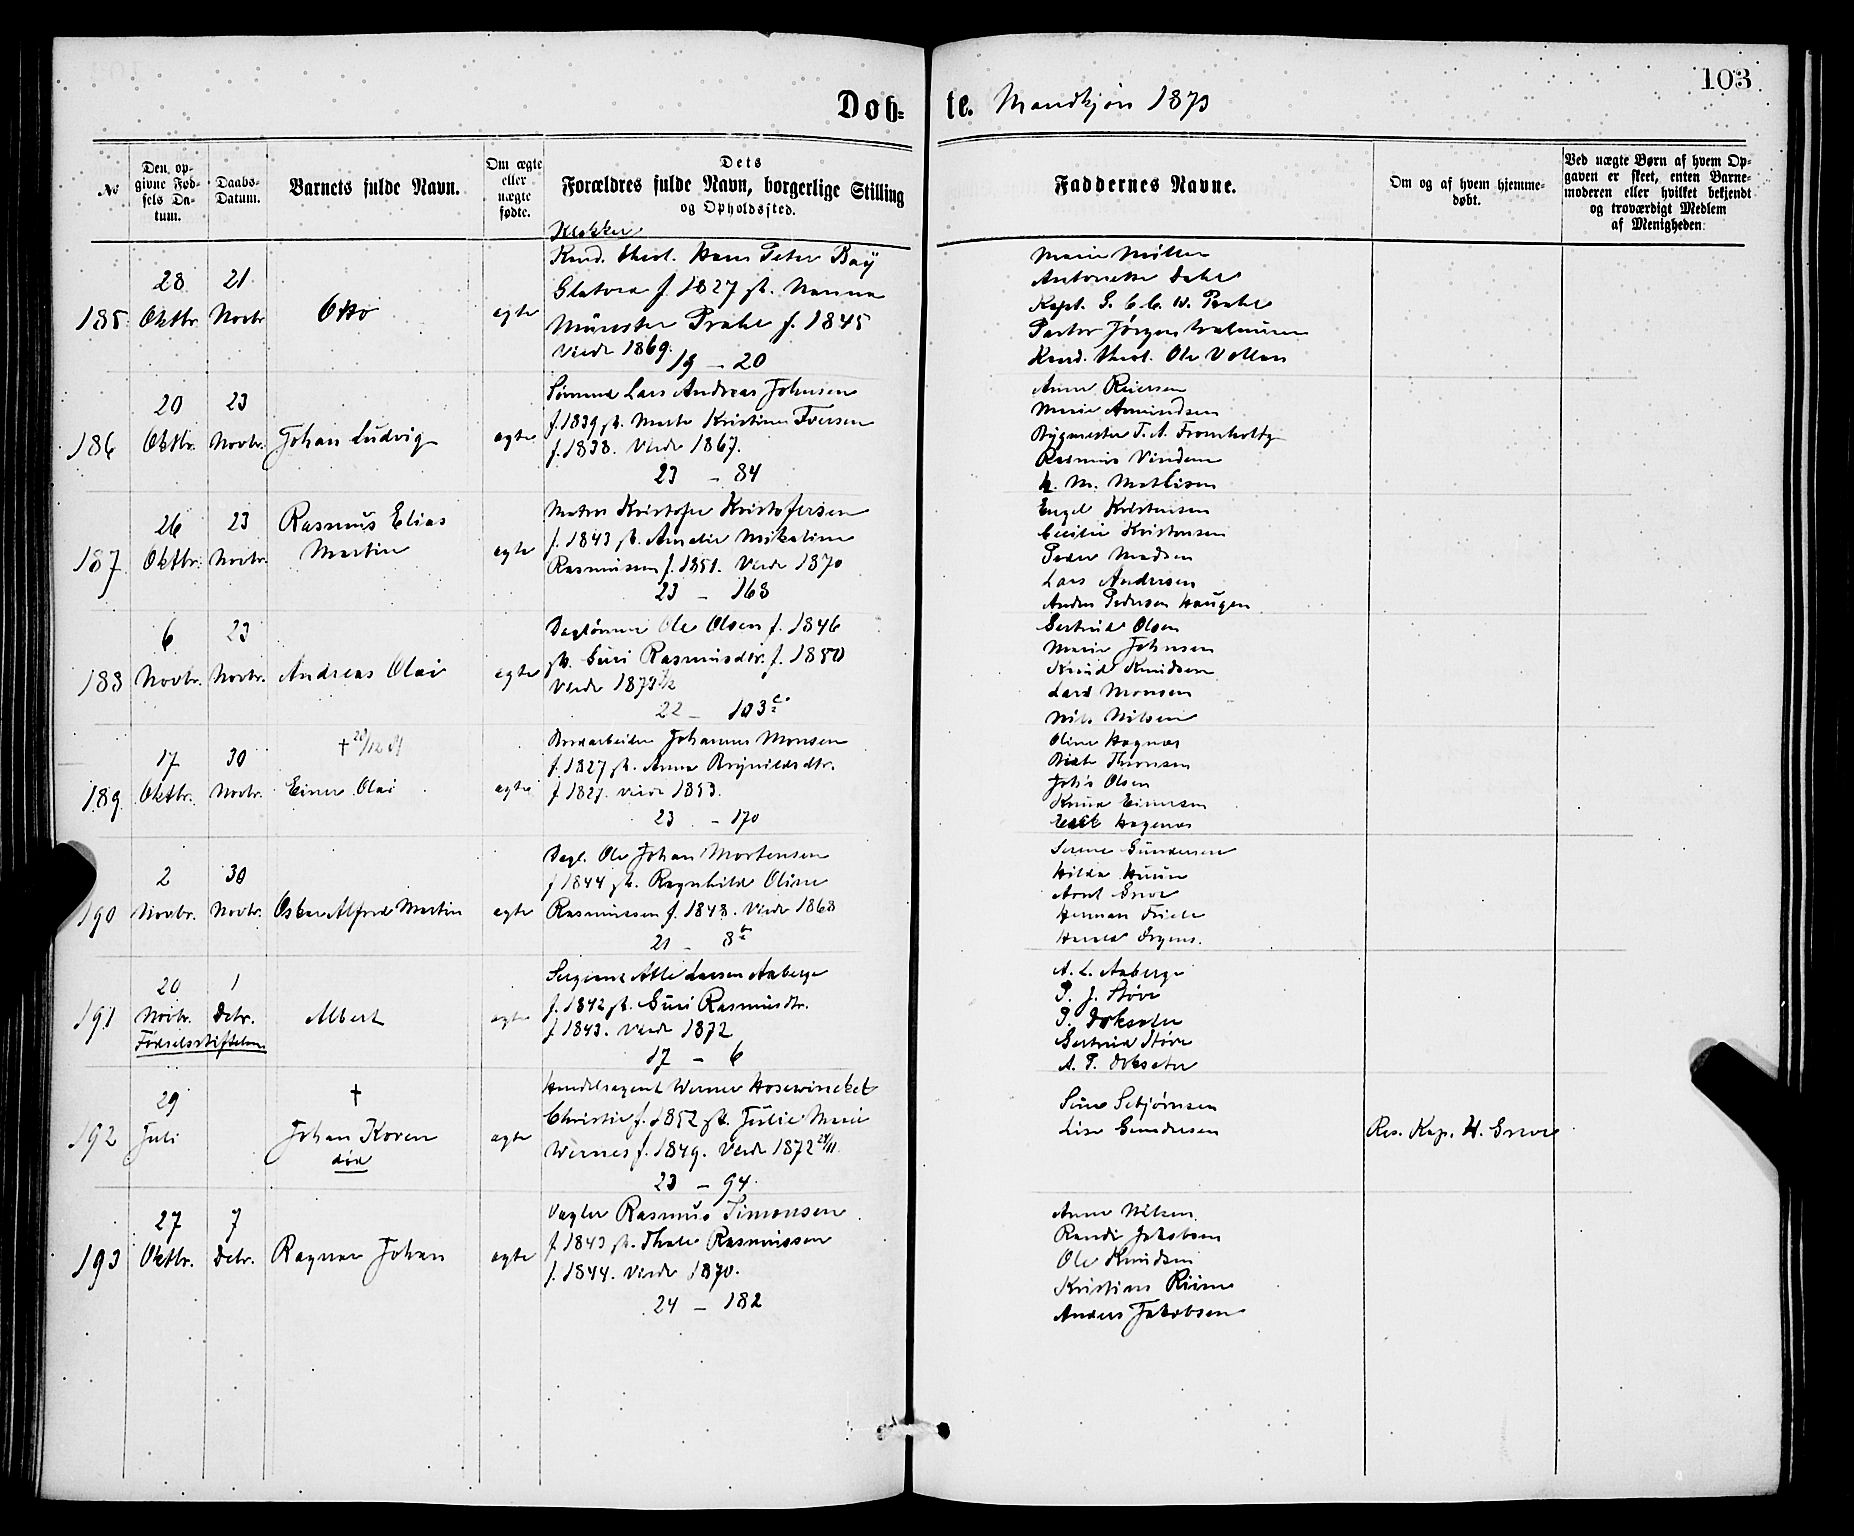 103
Døb- te. Mandkjøn 1873
No
Den op-
givne Fød-
sels Da-
tum.
Daabs-
Datum.
Barnets fulde Navn.
Om ægte
eller
uægte
fødte.
Dets
Forældres fulde Navn, borgerlige Stilling
og Opholdssted.
Faddernes Navne.
Om og af hvem hjemme-
døbt.
Ved uægte Børn af hvem Op-
gaven er skeet, enten Barne-
moderen eller hvilket bekjendt
og troværdigt Medlem
af Menigheden.
185.
28
Oktbr.
21
Novbr
Otto
ægte
Klokker
Kand. theol. Hans Peter Bay
f. 1827 gt. Nanna
Münster Prahl f. 1845
Viede 1869.
19 - 20
Marie Møller
Antonette Dahl
Kapt. G. C. C. W. Prahl
Pastor Jørgen
Kand. theol. Ole Vollan
186
20
Oktbr.
23
Novbr.
Johan Ludvig
ægte
Sømand Lars Andreas Johnsen
f. 1839 gt. Marte Kristine Iversen
f. 1838. Viede 1867.
23 - 84
Anne Reiersen
Marie Amundsen
Bygmester F. A. Fromholtz
Rasmus
H. M. Mathisen
187
26
Oktbr.
23
Novbr.
Rasmus Elias
Martin
ægte
Matros Kristofer Kristofersen
f. 1843 gt. Amalie Mikaline
Rasmussen f. 1851. Viede 1870
23 - 168
Engel Kristensen
Cecilie Kristensen
Peder Madsen
Lars Andersen
Anders Pedersen Haugen
188
6
Novbr.
23
Novbr.
Andreas Olai
ægte
Daglønner Ole Olsen f. 1846
gt. Guri Rasmusdtr. f. 1850
Viede 1873
22 - 103 c
Gertrude Olsen
Marie Johnsen
Knud Knudsen
Lars Monsen
Nils Nilsen
189.
17
Oktbr.
30
Novbr.
†
Einer Olai
ægte
Bordarbeider Johannes Monsen
f. 1827 gt. Anna Brynildsdtr.
f. 1827. Viede 1853.
23 - 170
Oline Hagnæs
Berte Thomsen
Johs Olsen
Knud Einersen
Hagenæs
190
2
Novbr.
30
Novbr.
Oskar Alfred Martin
ægte
Dagl. Ole Johan Mortensen
f 1844 gt. Ragnhild Oline
Rasmussen f. 1848. Viede 1868
21 - 8 b
Serene Gundersen
Hilda
Arnt Greve
Herman Friele
Harald Irgens.
191
20
Novbr.
Fødselsstiftelsen
1
Decbr.
Albert
ægte
Sergeant Atle Larsen Aaberge
f. 1842 gt. Guri Rasmusdtr.
f. 1843. Viede 1872
17 - 6
A. L. Aaberge
P. J. Støve
P. Doksæter
Gertrud Støve
A. P. Doksæter
192
29
Juli
†
Johan Koren
død
ægte
Handelsagent Werner Hosewinckel
Christie f. 1852 gt. Julie Marie
Wernes f. 1849. Viede 1872 24/11.
23 - 94.
Sebjørnsen
Lise Gundersen
Res. Kap. H. Greve
193
27
Oktbr.
7
Decbr.
Ragnar Johan
ægte
Vægter Rasmus Simonsen
f 1843 gt. Thale Rasmussen
f. 1844. Viede 1870.
24 - 182
Anne Nilsen
Randi Jakobsen
Ole Knudsen
Kristian
Anders Jakobsen